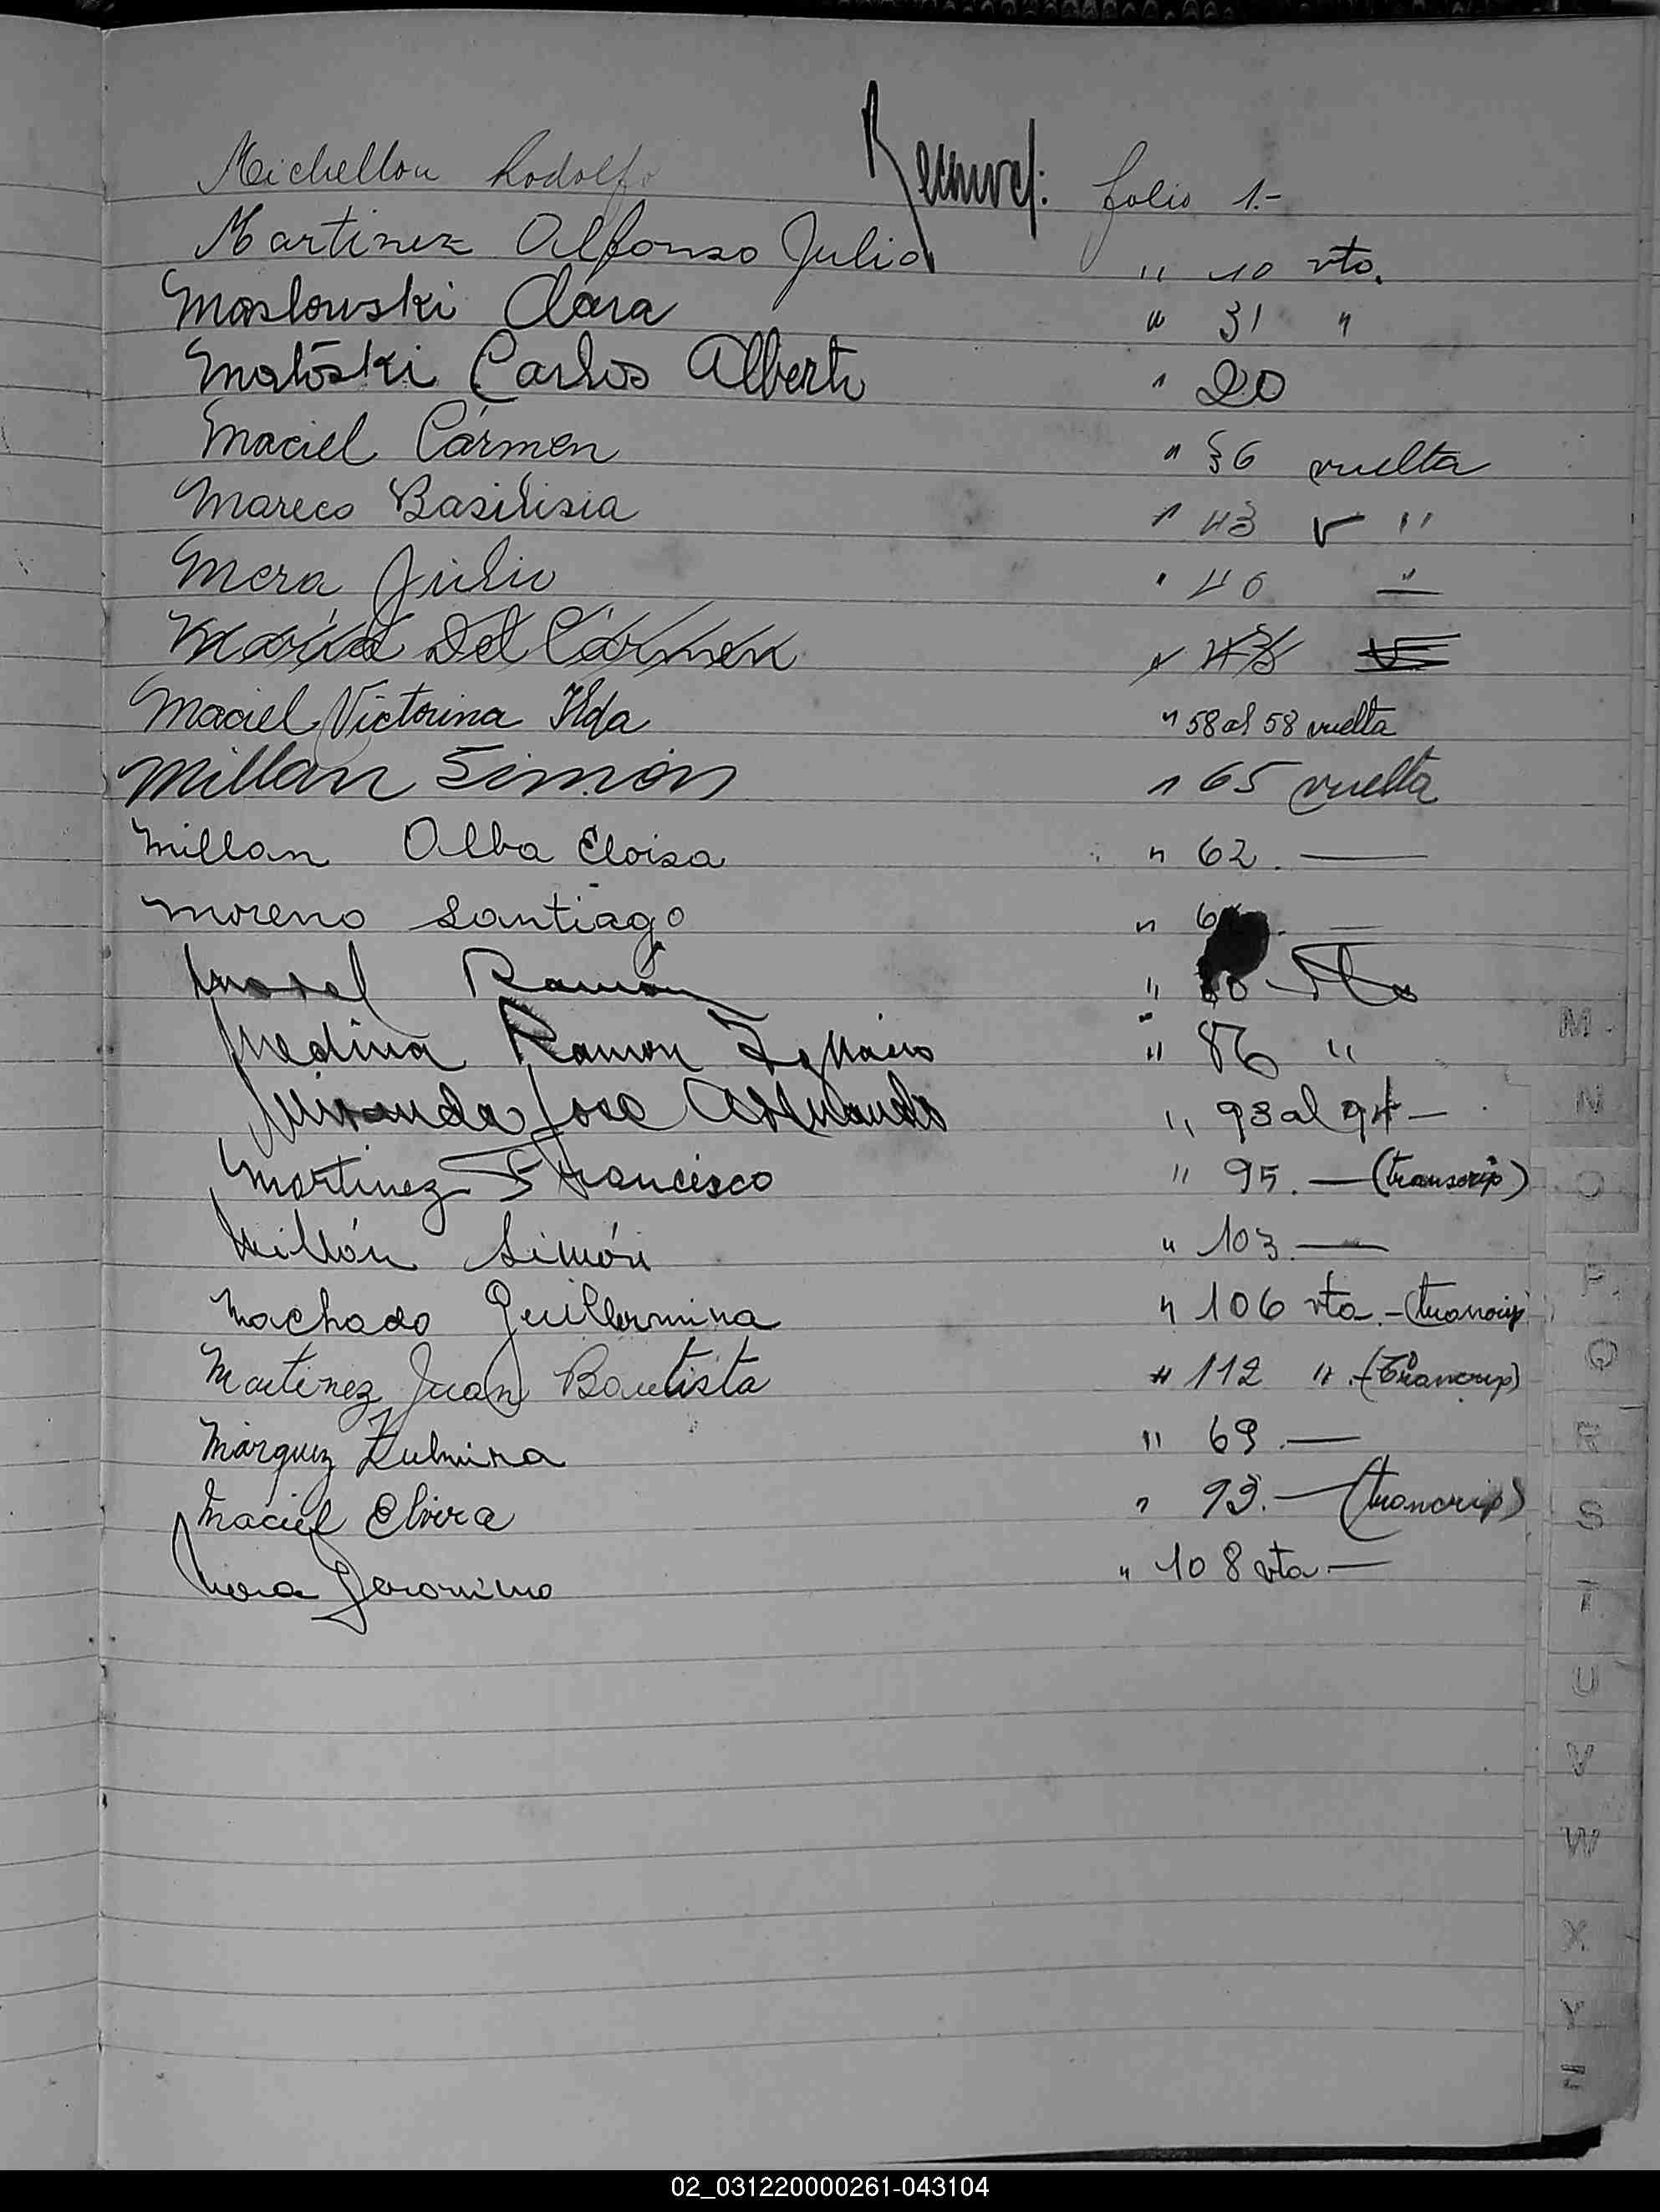 Michellou Rodolfo Reconoc/: folio 1.-
Martinez Alfonso Julio " 10 vto.
Maslowski Clara " 31 "
Matoski Carlos Alberto " 20
Maciel Cármen " 36 vuelta
Mareco Basilisia " 43 v "
Mera Julio " 40 "
María Del Cármen " 43
Maciel Victorina Ilda " 58 al 58 vuelta
Millan Simón " 65 vuelta
Millan Alba Eloisa " 62. —
Moreno Santiago " 6 . —
Morel Ramón " 80 vta
Medina Ramon Ignacio " 86 "
Miranda Jose Armando " 93 al 94 —
Martinez Francisco " 95. — (transcrip)
Millán Simón " 103 —
Machado Guillermina " 106 vta.- (trancrip)
Martinez Juan Bautista " 112 " .- (Trancrip)
Márquez Zulmira " 69. —
Maciel Elvira " 93. — (trancrip)
Mora Geronimo " 108 vta —
M
N
O
P
Q
R
S
T
U
V
W
X
Y
Z
02_031220000261-043104